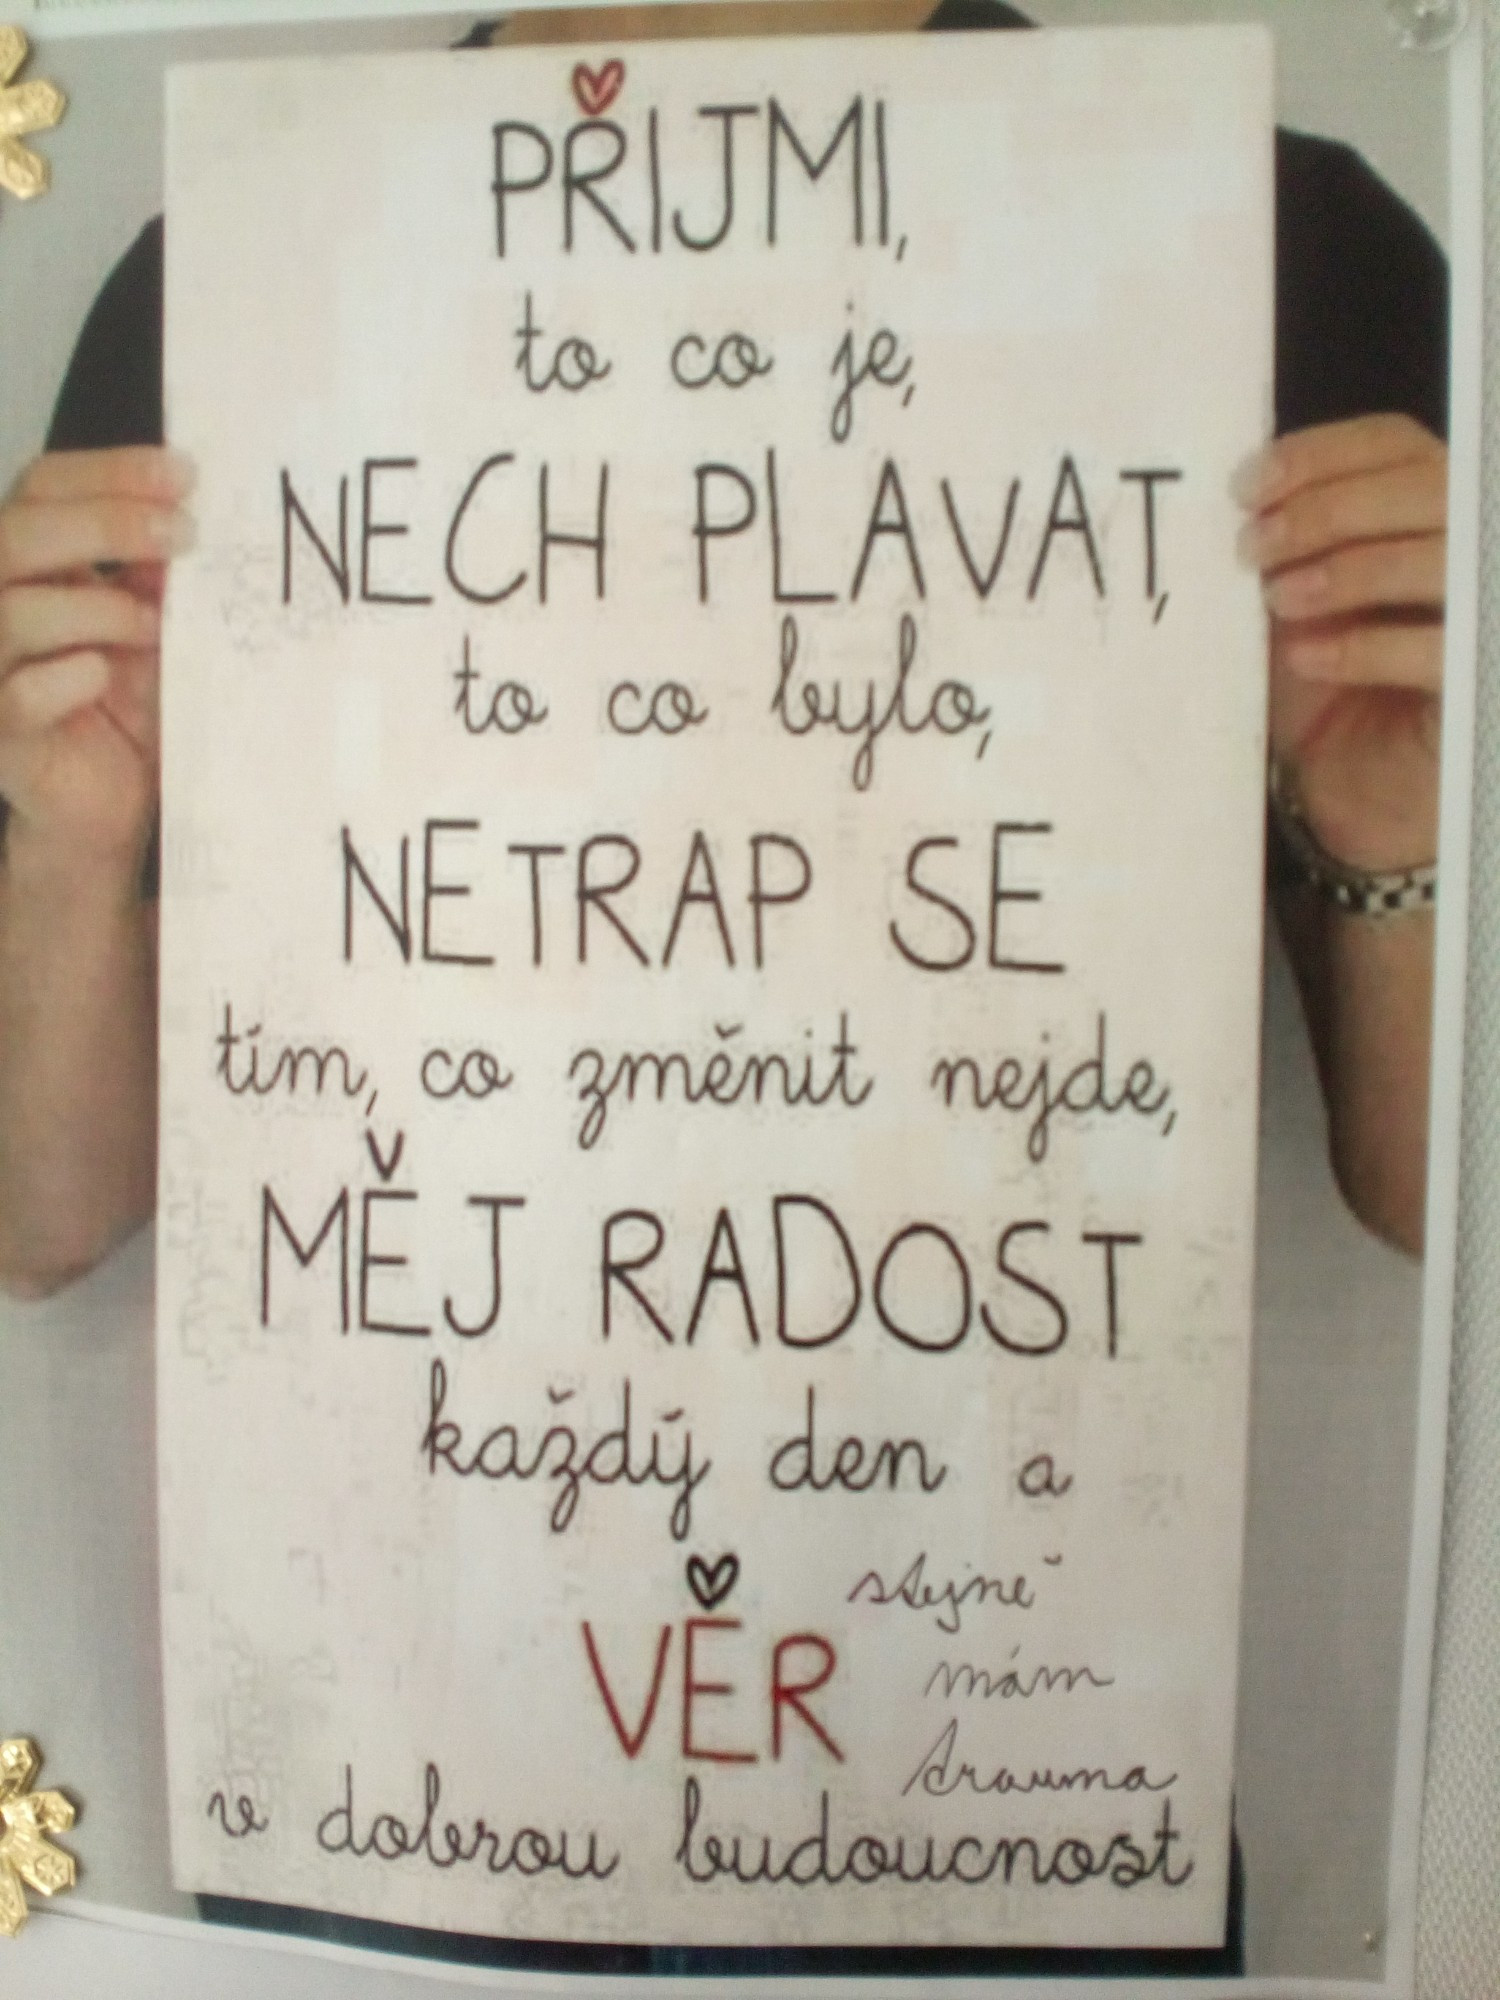 PŘIJMI,
to co je,
NECH PLAVAT,
to co bylo,
NETRAP SE
tím, co změnit nejde,
MĚJ RADOST
každý den a
VĚR
stejně
mám
trauma
v dobrou budoucnost